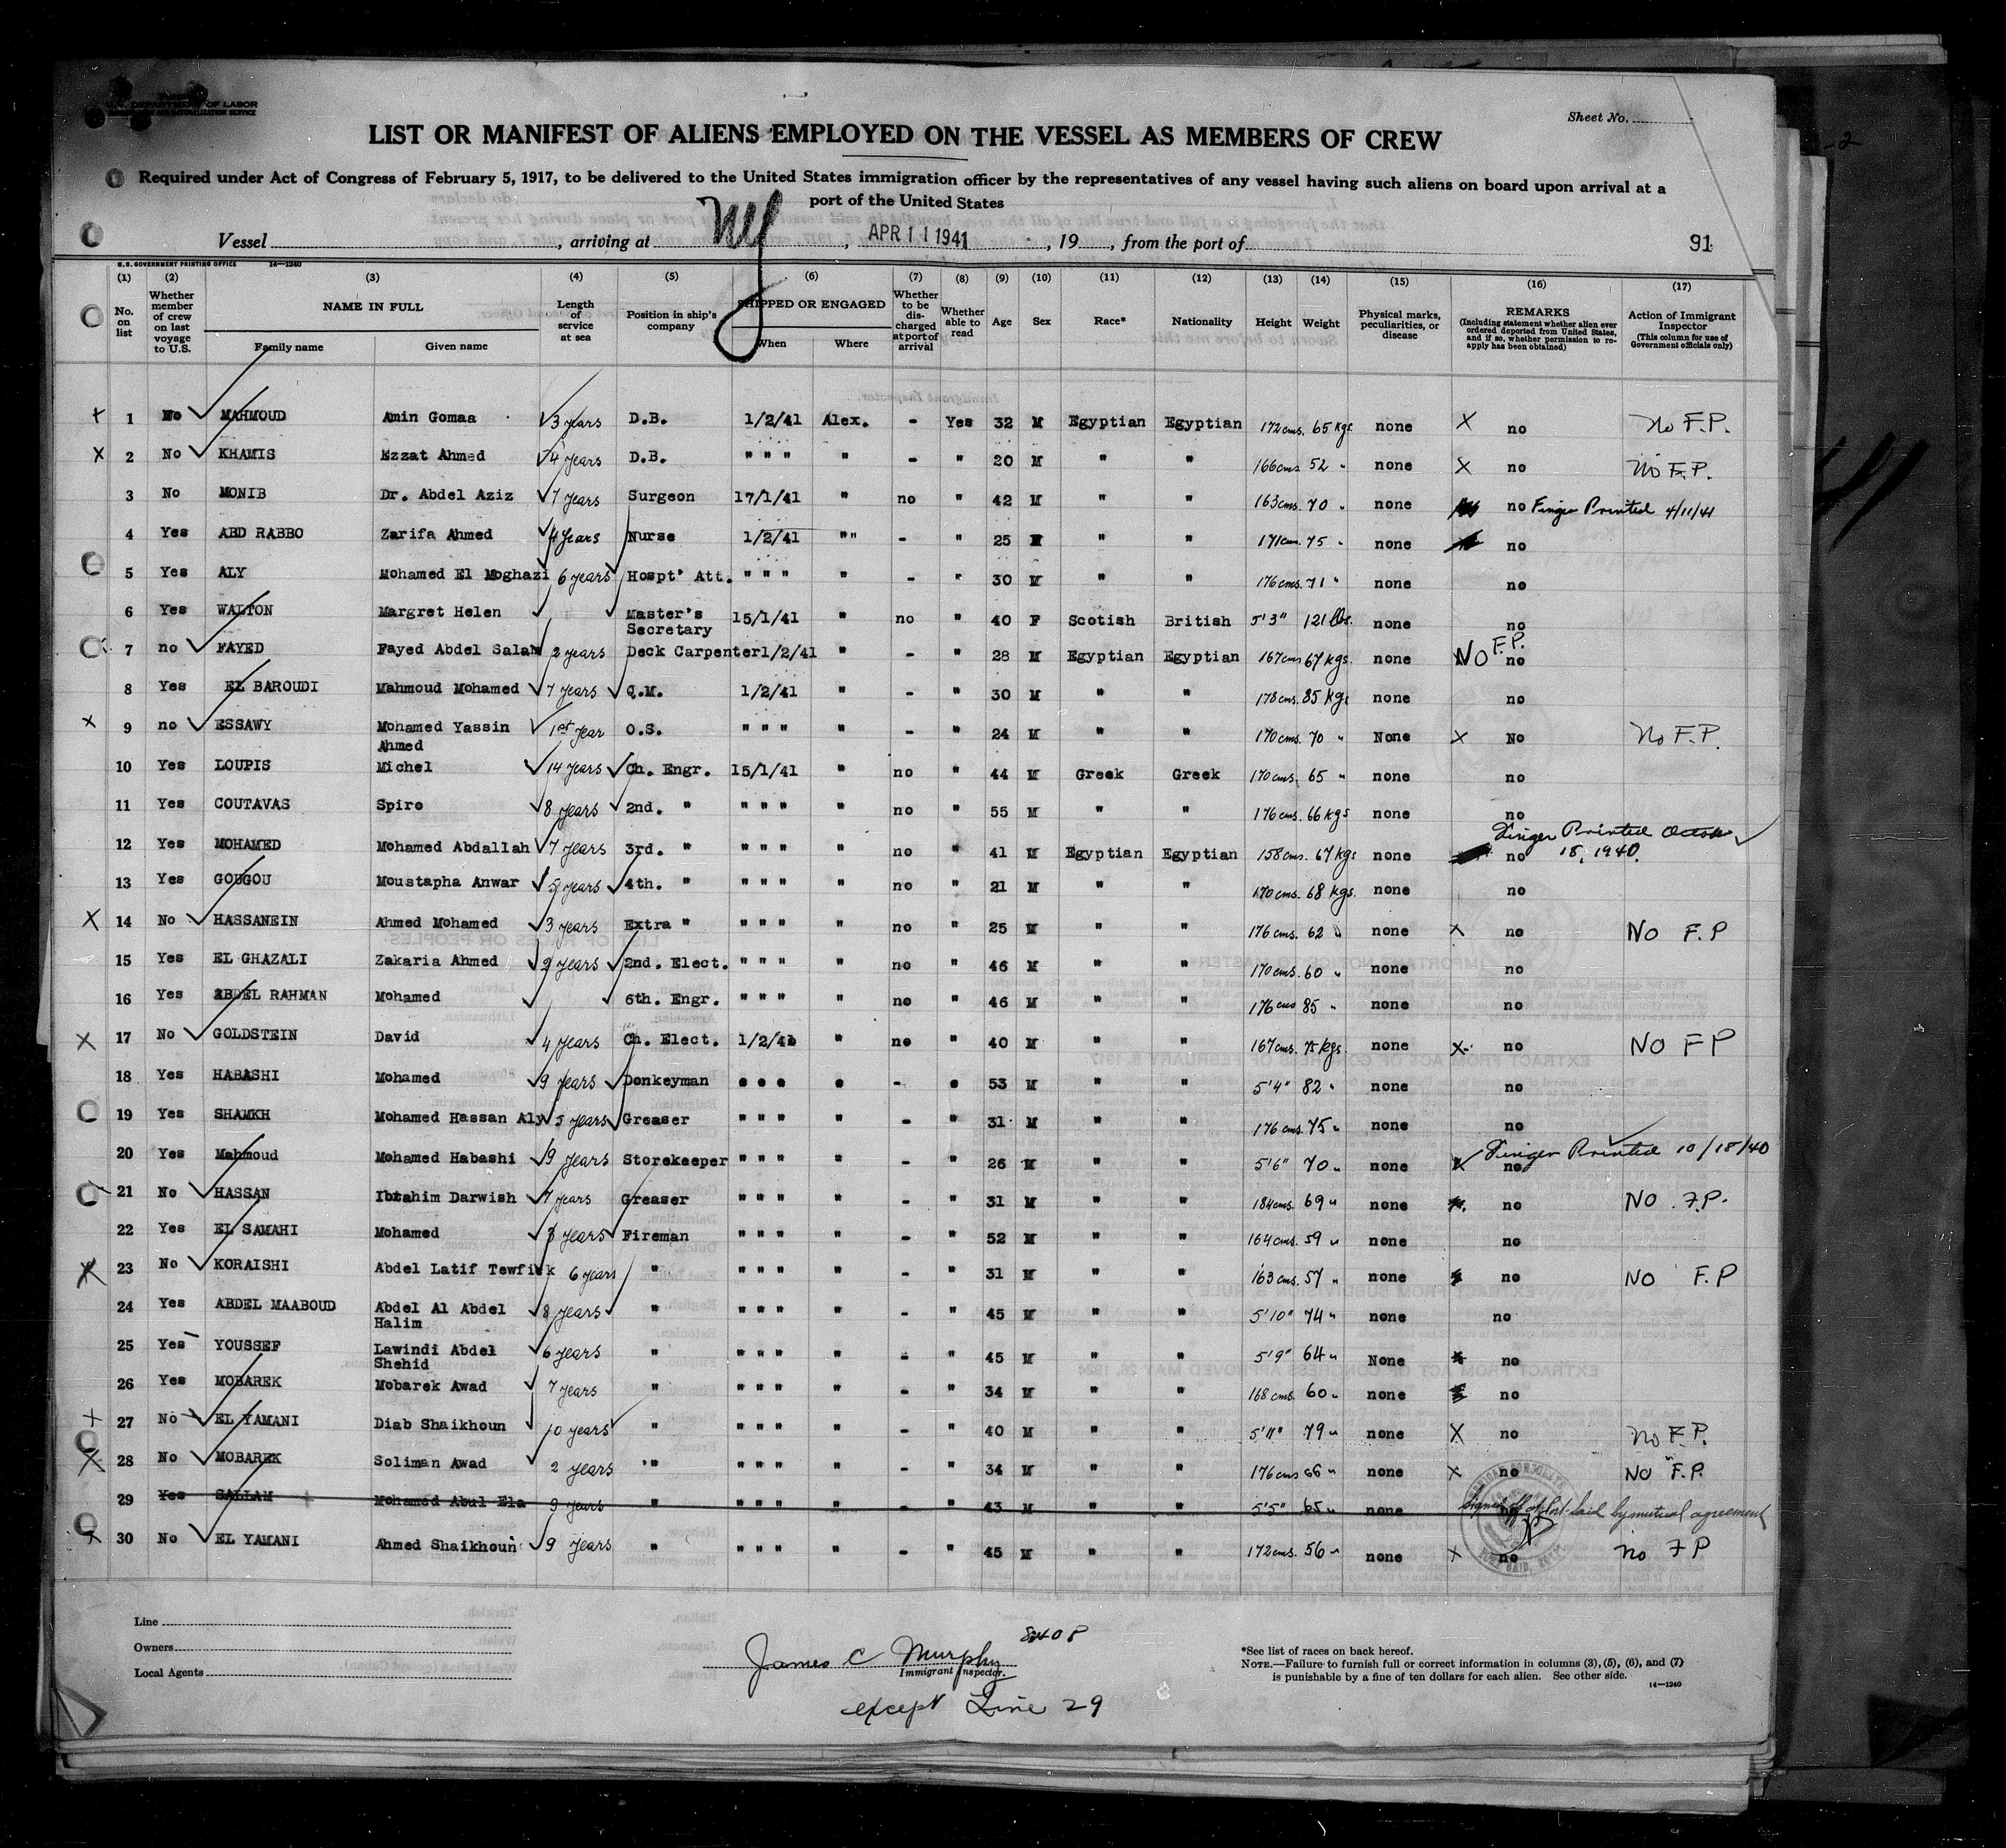 U.S. DEPARTMENT OF LABOR
Sheet No.
LIST OR MANIFEST OF ALIENS EMPLOYED ON THE VESSEL AS MEMBERS OF CREW
Required under Act of Congress of February 5, 1917, to be delivered to the United States immigration officer by the representatives of any vessel having such aliens on board upon arrival at a
port of the United States
Vessel , arriving at NY , APR 11 1941 , 19 , from the port of
91
U. S. GOVERNMENT PRINTING OFFICE 14—1240
(1) (2) (3) (4) (5) (6) (7) (8) (9) (10) (11) (12) (13) (14) (15) (16) (17)
No. on list
Whether member of crew on last voyage to U.S.
NAME IN FULL
Family name Given name
Length of service at sea
Position in ship's company
SHIPPED OR ENGAGED
When Where
Whether to be discharged at port of arrival
Whether able to read
Age Sex Race* Nationality Height Weight
Physical marks, peculiarities, or disease
REMARKS
(Including statement whether alien ever ordered deported from United States, and if so, whether permission to reapply has been obtained)
Action of Immigrant Inspector
(This column for use of Government officials only)
x 1 No MAHMOUD Amin Gomaa 3 years D.B. 1/2/41 Alex. - Yes 32 M Egyptian Egyptian 172 cms. 65 kgs. none X no No F.P.
x 2 No KHAMIS Ezzat Ahmed 4 years D.B. " " " " - " 20 M " " 166 cms 52 " none X no No F.P.
3 No MONIB Dr. Abdel Aziz 7 years Surgeon 17/1/41 " no " 42 M " " 163 cms. 70 " none no Finger Printed 4/11/41
4 Yes ABD RABBO Zarifa Ahmed 4 years Nurse 1/2/41 "" - " 25 " " 171 cm. 75 " none no
5 Yes ALY Mohamed El Moghazi 6 years Hospt' Att. " " " " - " 30 M " " 176 cms. 71 " none no
6 Yes WALTON Margret Helen Master's Secretary 15/1/41 " no " 40 F Scotish British 5'3" 121 lbs. none no
7 no FAYED Fayed Abdel Salam 2 years Deck Carpenter 1/2/41 " - " 28 M Egyptian Egyptian 167 cms 67 kgs. none NO F.P. no
8 Yes EL BAROUDI Mahmoud Mohamed 7 years Q.M. 1/2/41 " - " 30 M " " 178 cms. 85 kgs none no
x 9 no ESSAWY Mohamed Yassin Ahmed 1st year O.S. " " " " - " 24 M " " 170 cms. 70 " None X No No F.P.
10 Yes LOUPIS Michel 14 years Ch. Engr. 15/1/41 " no " 44 M Greek Greek 170 cms. 65 " none no
11 Yes COUTAVAS Spiro 8 years 2nd. " " " " " no " 55 M " " 176 cms. 66 kgs none no
12 Yes MOHAMED Mohamed Abdallah 7 years 3rd. " " " " " no " 41 M Egyptian Egyptian 158 cms. 67 kgs none no Finger Printed October 18, 1940.
13 Yes GOUGOU Moustapha Anwar 5 years 4th. " " " " " no " 21 M " " 170 cms. 68 kgs. none no
X 14 No HASSANEIN Ahmed Mohamed 3 years Extra " " " " " no " 25 M " " 176 cms. 62 " none X no NO F.P
15 Yes EL GHAZALI Zakaria Ahmed 9 years 2nd. Elect. " " " " no " 46 M " " 170 cms. 60 " none no
16 Yes ABDEL RAHMAN Mohamed 6th. Engr. " " " " no " 46 M " " 176 cms 85 " none no
X 17 No GOLDSTEIN David 4 years Ch. Elect. 1/2/41 " no " 40 M " " 167 cms. 75 kgs. none X no NO FP
18 Yes HABASHI Mohamed 9 years Donkeyman " " " " - " 53 M " " 5'4" 82 " none no
19 Yes SHAMKH Mohamed Hassan Aly 5 years Greaser " " " " - " 31 M " " 176 cms. 75 " none no
20 Yes Mahmoud Mohamed Habashi 9 years Storekeeper " " " " - " 26 M " " 5'6" 70 " none no Finger Printed 10/18/40
21 No HASSAN Ibrahim Darwish 7 years Greaser " " " " - " 31 M " " 184 cms. 69 " none no NO F.P.
22 Yes EL SAMAHI Mohamed 3 years Fireman " " " " - " 52 M " " 164 cms. 59 " none no
X 23 No KORAISHI Abdel Latif Tewfick 6 years " " " " " - " 31 M " " 163 cms. 57 " none no NO F.P
24 Yes ABDEL MAABOUD Abdel Al Abdel Halim 8 years " " " " " - " 45 M " " 5'10" 74 " none no
25 Yes YOUSSEF Lawindi Abdel Shehid 6 years " " " " " - " 45 M " " 5'9" 64 " None no
26 Yes MOBAREK Mobarek Awad 7 years " " " " " - " 34 M " " 168 cms. 60 " none no
x 27 No EL YAMANI Diab Shaikhoun 10 years " " " " " - " 40 M " " 5'11" 79 " none X no No F.P.
X 28 No MOBAREK Soliman Awad 2 years " " " " " - " 34 M " " 176 cms 66 " none X no NO F.P.
29 Yes SALLAM Mohamed Abul Ela 9 years " " " " " - " 43 M " " 5'5" 65 " none Signed off at Port Said by mutual agreement
x 30 No EL YAMANI Ahmed Shaikhoun 9 years " " " " " - " 45 M " " 172 cms. 56 " none X no No F P
Line
Owners
Local Agents
James C Murphy
Immigrant Inspector.
except Line 29
*See list of races on back hereof.
NOTE.—Failure to furnish full or correct information in columns (3), (5), (6), and (7)
is punishable by a fine of ten dollars for each alien. See other side.
14—1240